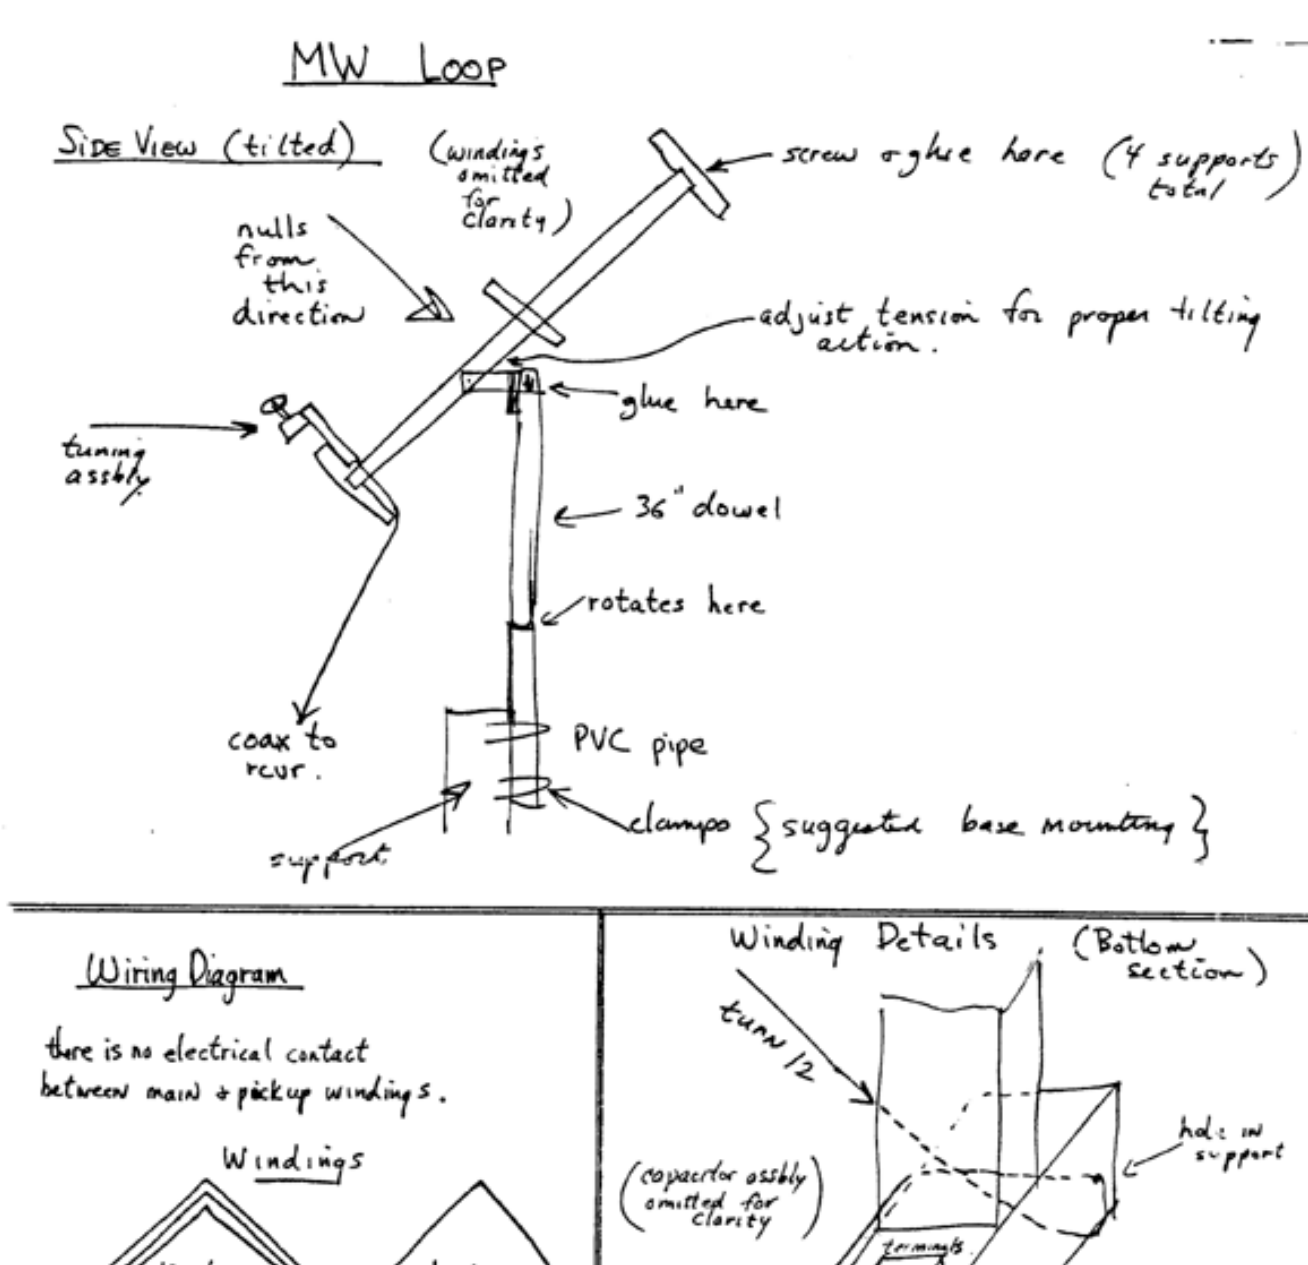 MW Loop
Side View (tilted)
(windings
omitted
for
clarity)
screw & glue here (4 supports
total)
nulls
from
this
direction
adjust tension for proper tilting
action.
glue here
tuning
assbly.
36" dowel
rotates here
coax to
rcvr.
PVC pipe
clamps {suggested base mounting}
support
Wiring Diagram
there is no electrical contact
between main & pickup windings.
Windings
Winding Details (Bottom
section)
turn 12
hole in
support
(capacitor assbly
omitted for
clarity)
terminals